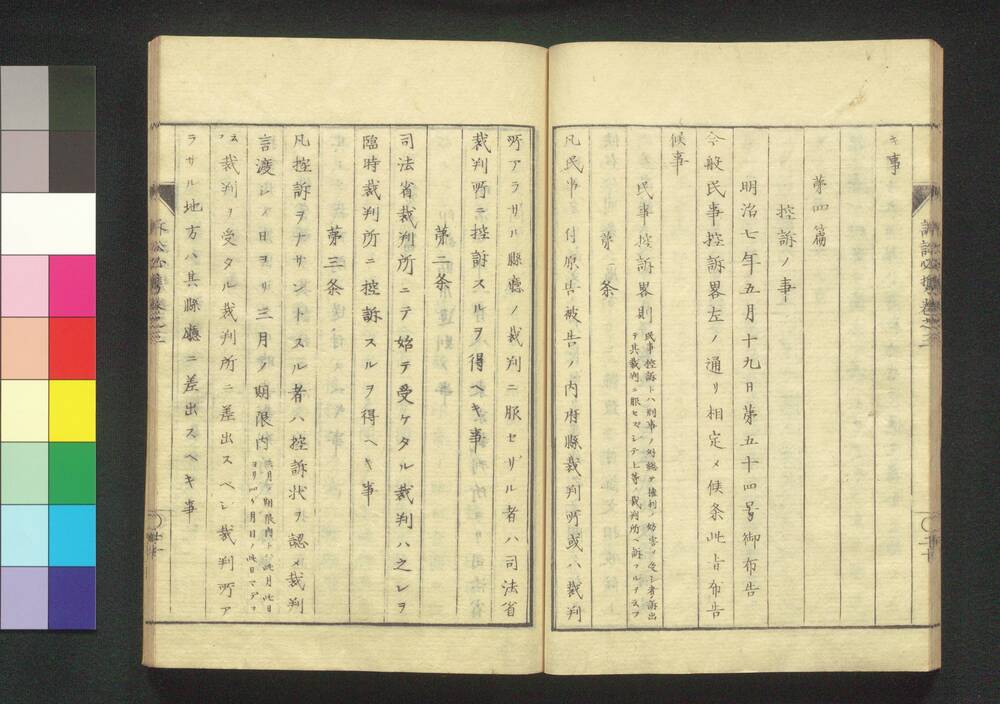 キ事
第四篇
控訴ノ事
明治七年五月十九日第五十四号御布告
今般民事控訴畧左ノ通リ相定メ候条此旨布告
候事
民事控訴畧則
民事控訴トハ刑事ノ外総テ権利ノ妨害ヲ受シ者訴出
テ其裁判ニ服セスシテ上等ノ裁判所ヘ訴フルヲ云フ
第一条
凡民事ノ付原告被告ノ内府縣裁判所或ハ裁判
所アラサル縣廳ノ裁判ニ服セサル者ハ司法省
裁判所ニ控訴スルヲ得ヘキ事
第二条
司法省裁判所ニテ始テ受ケタル裁判ハ之レヲ
臨時裁判所ニ控訴スルヲ得ヘキ事
第三条
凡控訴ヲナサントスル者ハ控訴状ヲ認メ裁判
言渡ノ日ヨリ三月ノ期限内
ヨリ
裁判ヲ受タル裁判所ニ差出スベシ裁判所ア
ラサル地方ハ其縣廳ニ差出スヘキ事